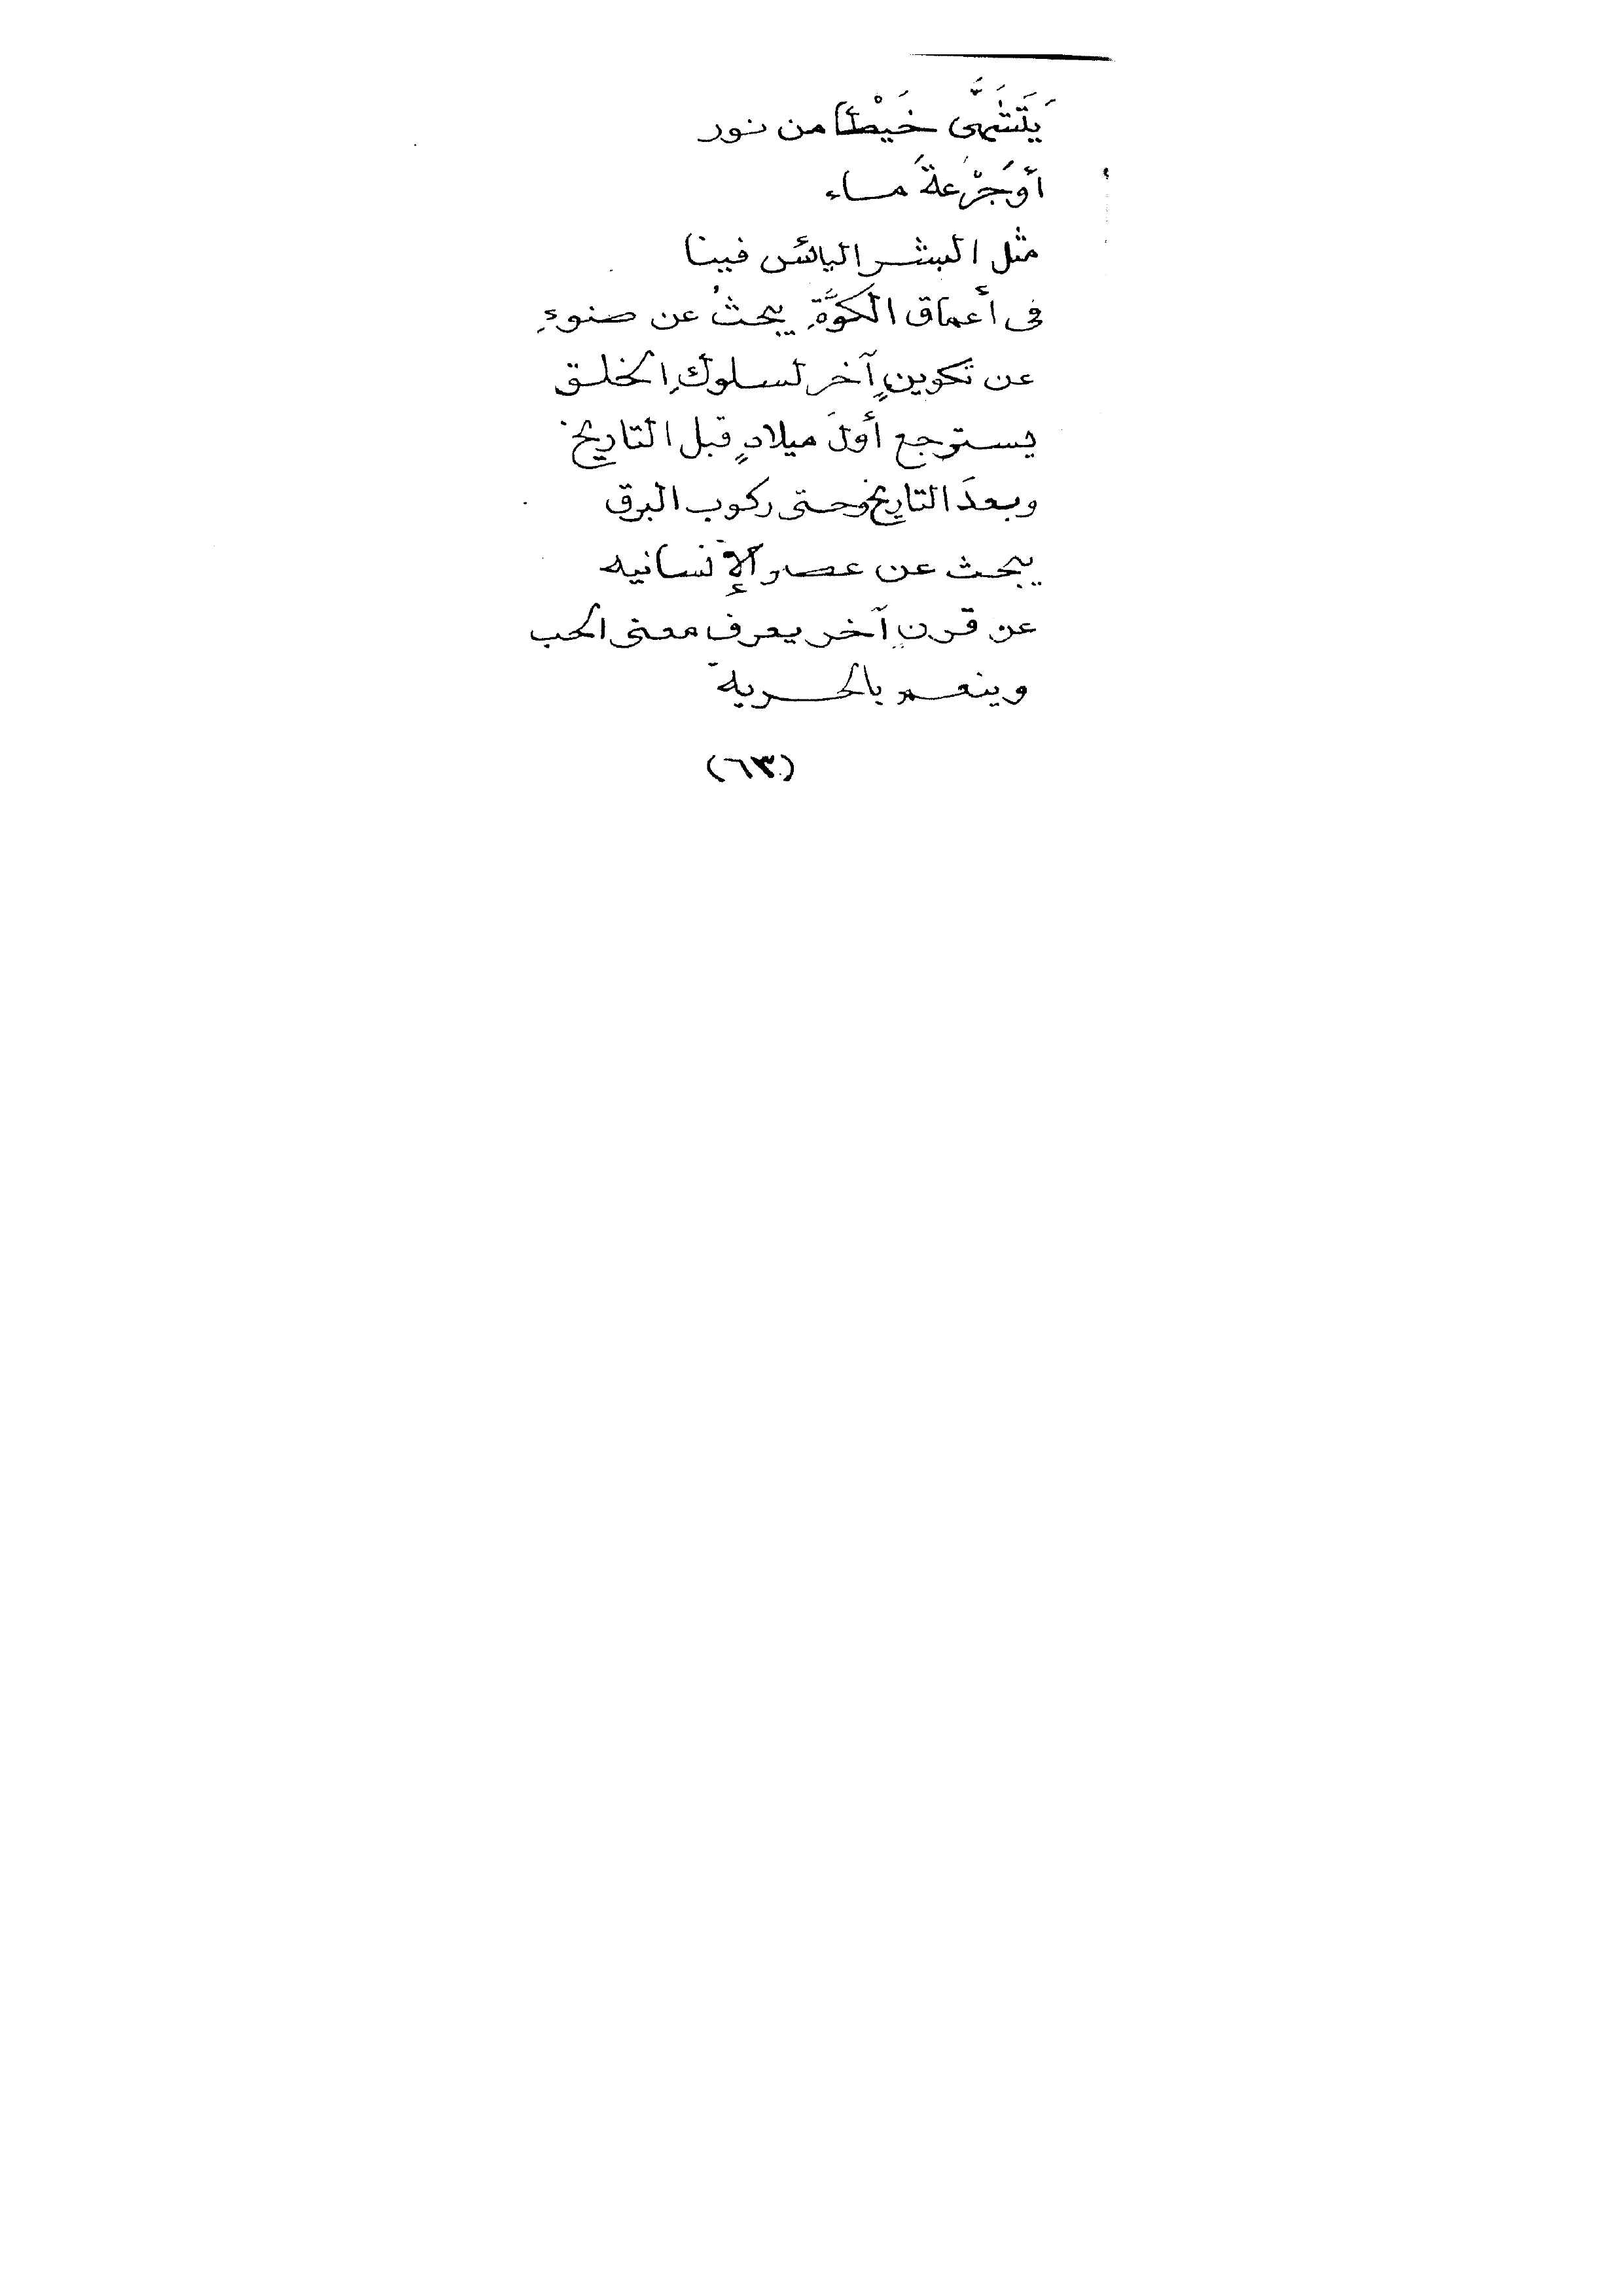 يَتَشَهَّى خَيْطاً من نور
أو جَرْعةَ ماء
مثل البشر اليائس فينا
فى أعماق الكوَّةِ يبحثُ عن ضوءِ
عن تكوينٍ آخر لسلوكِ الخلق
يسترجع أولَ ميلادٍ قبل التاريخ
وبعدَ التاريخ وحتى ركوب البرق
يبحث عن عصر الإنسانيه
عن قرنٍ آخر يعرف معنى الحب
وينعم بالحرية
(٦٣)